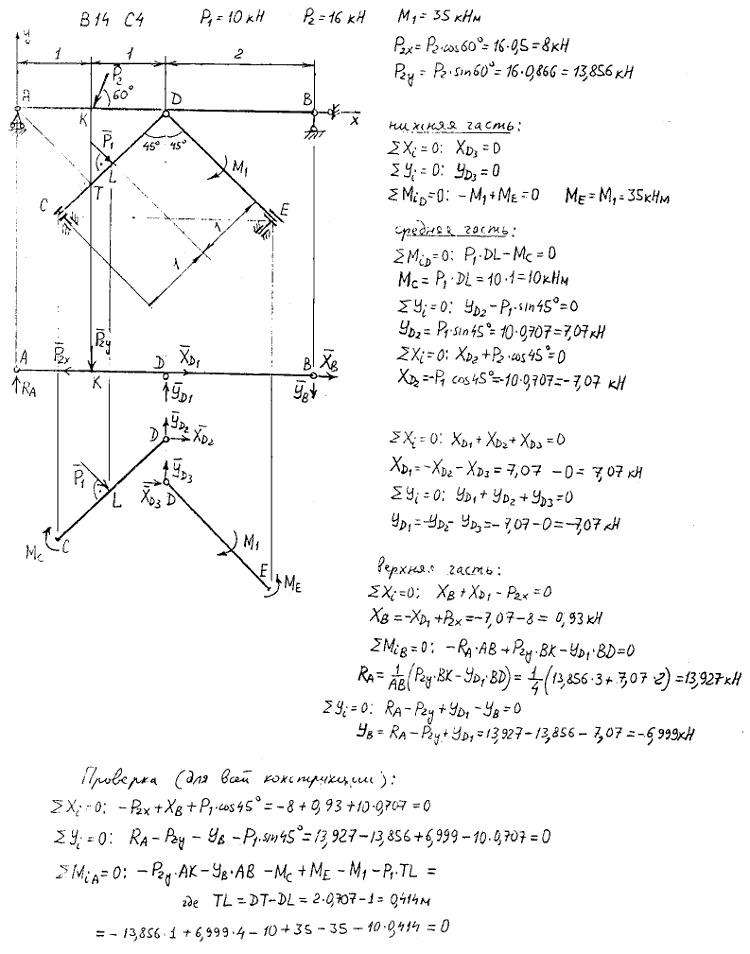 B14 C4 P₁=10 кН P₂=16 кН M₁=35 кНм
P₂ₓ=P₂·cos60°=16·0,5=8кН
P₂y=P₂·sin60°=16·0,866=13,856 кН
y
1 1 2
P̅₂
60°
A K D B x
P̅₁
45° 45°
L M₁
T
C E
1
1
нижняя часть:
ΣXi=0: XD₃=0
ΣYi=0: YD₃=0
ΣMiD=0: -M₁+ME=0 ME=M₁=35кНм
средняя часть:
ΣMiD=0: P₁·DL-MC=0
MC=P₁·DL=10·1=10кНм
ΣYi=0: YD₂-P₁·sin45°=0
YD₂=P₁·sin45°=10·0,707=7,07кН
ΣXi=0: XD₂+P₂·cos45°=0
XD₂=-P₁ cos45°=-10·0,707=-7,07 кН
A P̅₂ₓ P̅₂y D X̅D₁ B X̅B
RA K Y̅D₁ Y̅B
Y̅D₂
D X̅D₂
P̅₁ Y̅D₃
L X̅D₃ D
MC C M₁
E ME
ΣXi=0: XD₁+XD₂+XD₃=0
XD₁=-XD₂-XD₃=7,07 -0=7,07кН
ΣYi=0: YD₁+YD₂+YD₃=0
YD₁=-YD₂-YD₃=-7,07-0=-7,07кН
верхняя часть:
ΣXi=0: XB+XD₁-P₂ₓ=0
XB=-XD₁+P₂ₓ=-7,07-8=0,93кН
ΣMiB=0: -RA·AB+P₂y·BK-YD₁·BD=0
RA=1/AB(P₂y·BK-YD₁·BD)=1/4(13,856·3+7,07·2)=13,927кН
ΣYi=0: RA-P₂y+YD₁-YB=0
YB=RA-P₂y+YD₁=13,927-13,856-7,07=-6,999кН
Проверка (для всей конструкции):
ΣXi=0: -P₂ₓ+XB+P₁·cos45°=-8+0,93+10·0,707=0
ΣYi=0: RA-P₂y-YB-P₁·sin45°=13,927-13,856+6,999-10·0,707=0
ΣMiA=0: -P₂y·AK-YB·AB-MC+ME-M₁-P₁·TL =
где TL=DT-DL=2·0,707-1=0,414м
=-13,856·1+6,999·4-10+35-35-10·0,414=0